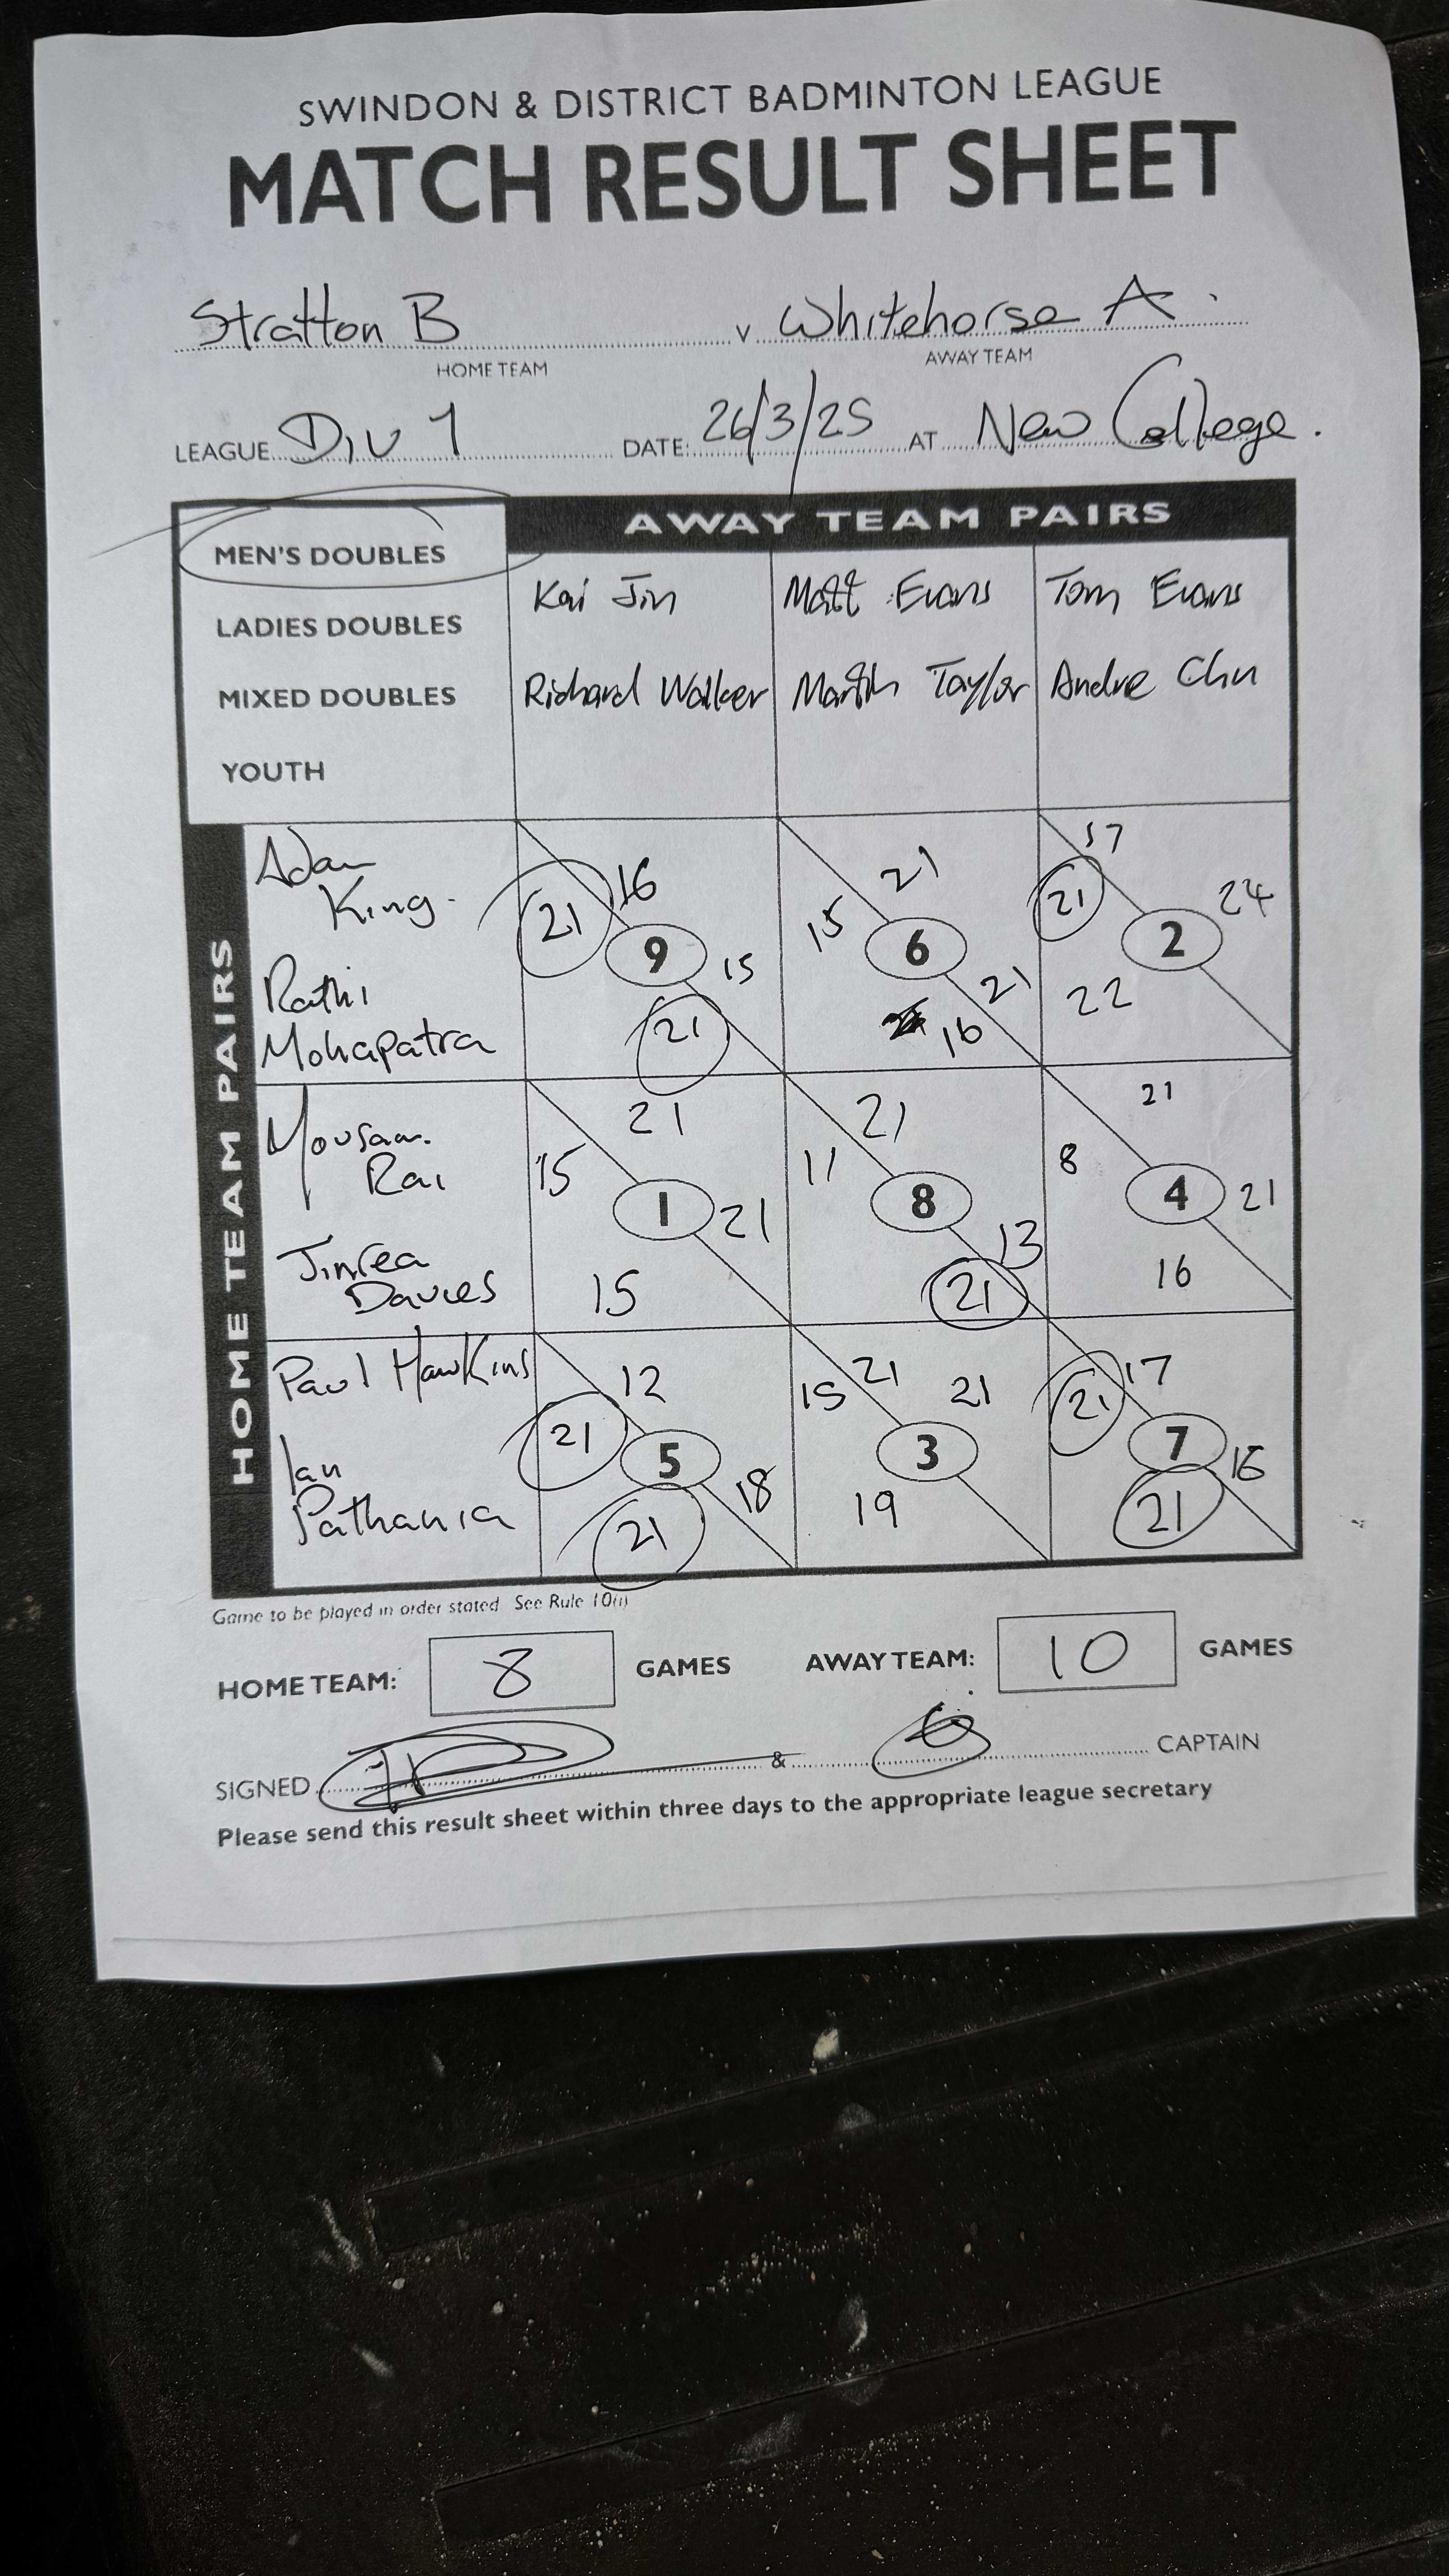 SWINDON & DISTRICT BADMINTON LEAGUE
MATCH RESULT SHEET
Stratton B v Whitehorse A.
HOME TEAM AWAY TEAM
LEAGUE Div 1 DATE: 26/3/25 AT New College.
AWAY TEAM PAIRS
MEN'S DOUBLES
LADIES DOUBLES
MIXED DOUBLES
YOUTH
Kai Jin Matt Evans Tom Evans
Richard Walker Martin Taylor Andre Chu
HOME TEAM PAIRS
Adam
King.
Rathi
Mohapatra
21 16
9
15
21
21
15
6
21
16
17
21
24
2
22
Mousam.
Rai
Davies
21
15
1
21
15
21
11
8
13
21
21
8
4
21
16
Paul Hawkins
Ian
Pathania
12
21
5
18
21
21
15
21
3
19
17
21
7
16
21
Game to be played in order stated See Rule 10(i)
HOME TEAM: 8 GAMES AWAY TEAM: 10 GAMES
SIGNED & CAPTAIN
Please send this result sheet within three days to the appropriate league secretary